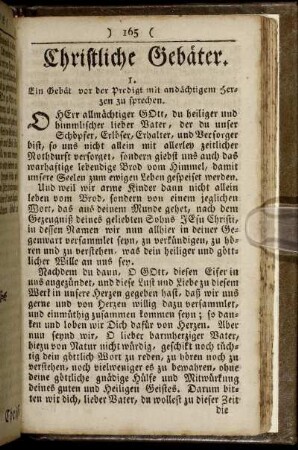 ) 165 (
Christliche Gebäter.
1.
Ein Gebät vor der Predigt mit andächtigem Her-
zen zu sprechen.
O HErr allmächtiger GOtt, du heiliger und
himmlischer lieber Vater, der du unser
Schöpfer, Erlöser, Erhalter, und Versorger
bist, so uns nicht allein mit allerley zeitlicher
Nothdurft versorget, sondern giebst uns auch das
warhaftige lebendige Brod vom Himmel, damit
unsere Seelen zum ewigen Leben gespeiset werden.
Und weil wir arme Kinder dann nicht allein
leben vom Brod, sondern von einem jeglichen
Wort, das aus deinem Munde gehet, nach dem
Gezeugniß deines geliebten Sohns JEsu Christi,
in dessen Namen wir nun allhier in deiner Ge-
genwart versammlet seyn, zu verkündigen, zu hö-
ren und zu verstehen, was dein heiliger und gött-
licher Wille an uns sey.
Nachdem du dann, O GOtt, diesen Eifer in
uns angezündet, und diese Lust und Liebe zu diesem
Werk in unsere Herzen gegeben hast, daß wir uns
gerne und von Herzen willig dazu versammlet,
und einmüthig zusammen kommen seyn; so dan-
ken und loben wir Dich dafür von Herzen. Aber
nun seynd wir, O lieber barmherziger Vater,
hiezu von Natur nicht würdig, geschikt noch tüch-
tig dein göttlich Wort zu reden, zu hören noch zu
verstehen, noch vielweniger es zu bewahren, ohne
deine göttliche gnädige Hülfe und Mitwürkung
deines guten und Heiligen Geistes. Darum bit-
ten wir dich, lieber Vater, du wollest zu dieser Zeit
die